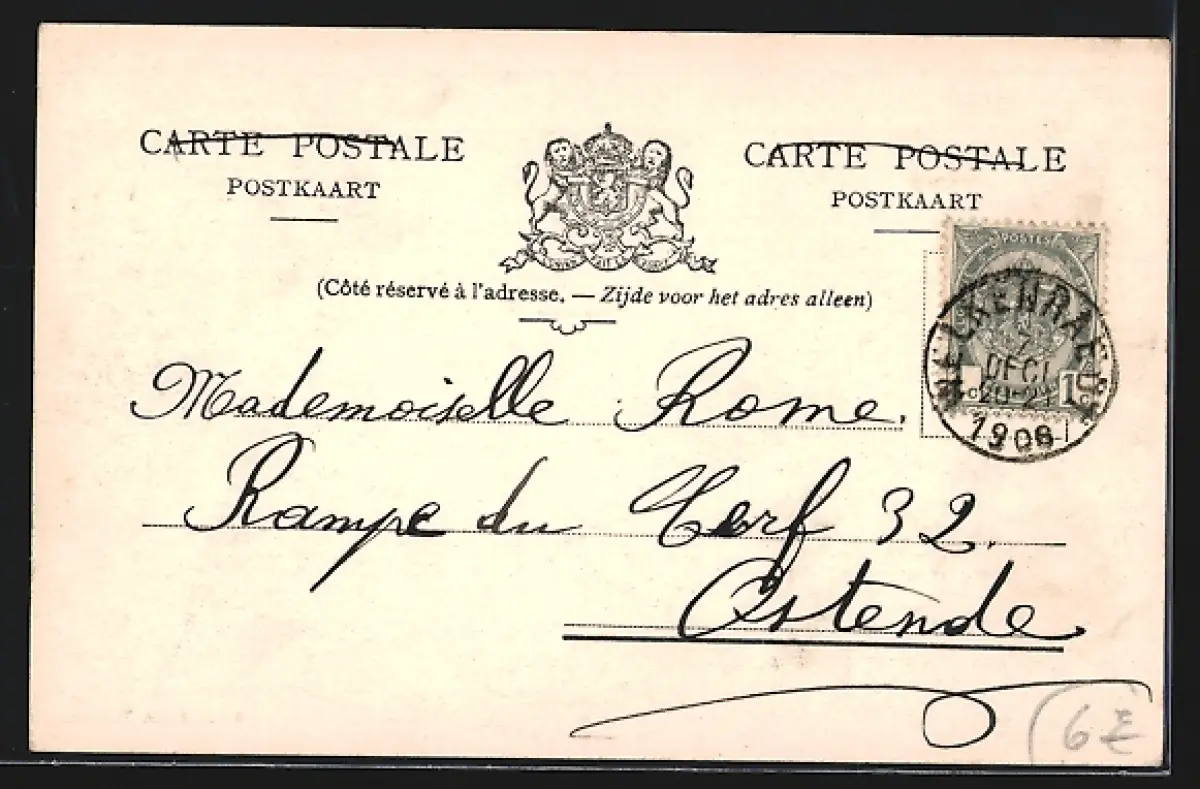 CARTE POSTALE
POSTKAART
CARTE POSTALE
POSTKAART
(Côté réservé à l'adresse. — Zijde voor het adres alleen)
POSTES
1c
WELKENRAEDT
7
DECE
20-21
1906
Mademoiselle Rome.
Rampe du Cerf 32.
Ostende
6€